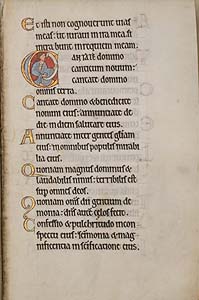 Et isti non cognoverunt vias
meas: ut iuravi in ira mea si
intrabunt in requiem meam.
Cantate domino
canticum novum:
cantate domino
omnis terra.
Cantate domino & benedicite
nomini eius: annuntiate de
die in diem salutare eius.
Annuntiate inter gentes gliam
eius: in omnibus populis mirabi
lia eius.
Quoniam magnus dominus &
laudabilis nimis: terribilis est
sup omnes deos.
Quoniam oms dii gentium de
monia: dns aute celos fecit.
Confessio & pulchritudo in con
spectu eius: scimonia & mag
nificencia in scificatione eius.